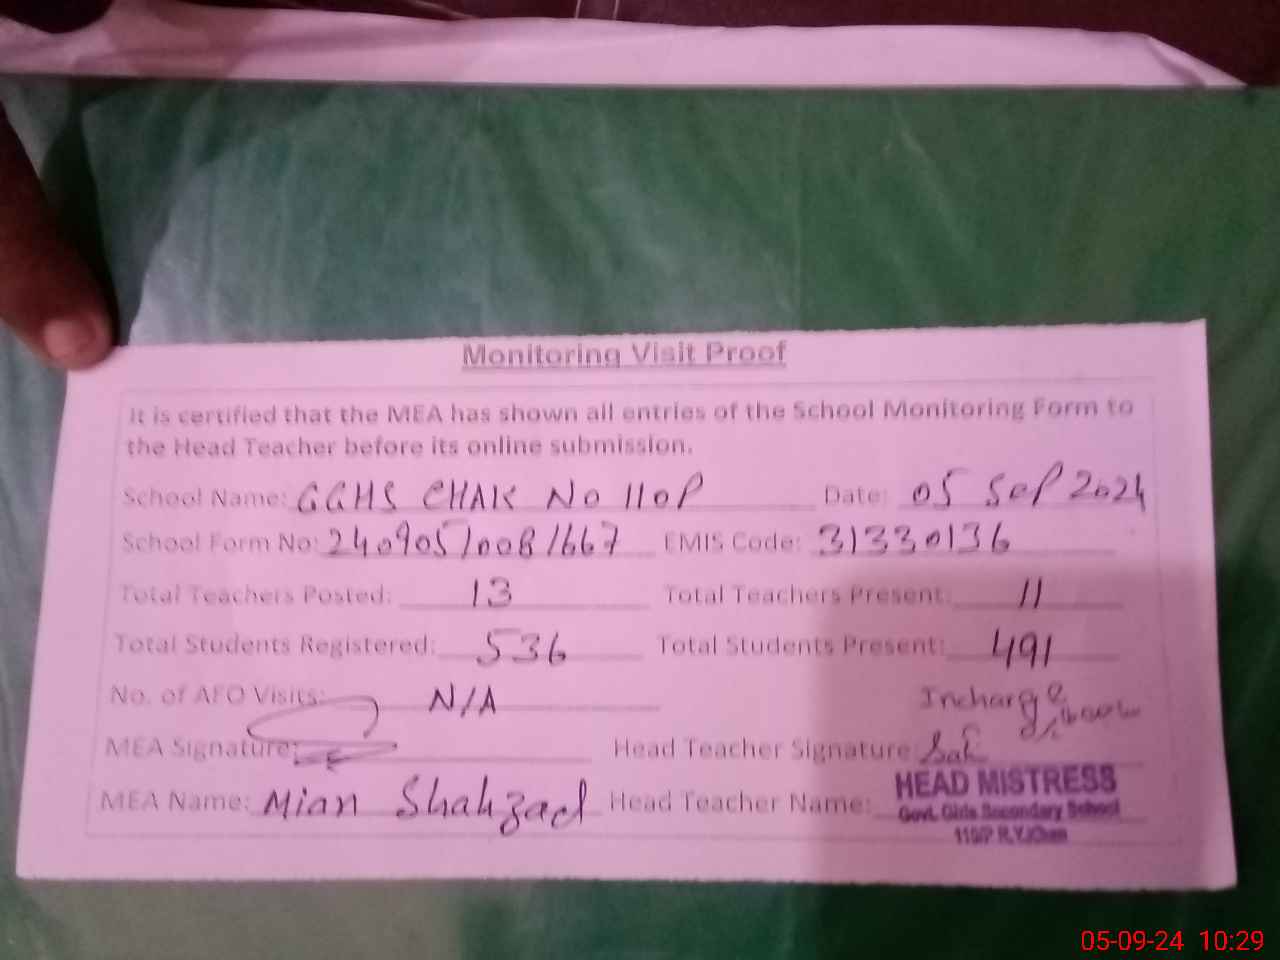 Monitoring Visit Proof
It is certified that the MEA has shown all entries of the School Monitoring Form to
the Head Teacher before its online submission.
School Name: GGHS CHAK No 110P Date: 05 Sep 2024
School Form No: 24090510081667 EMIS Code: 31330136
Total Teachers Posted: 13 Total Teachers Present: 11
Total Students Registered: 536 Total Students Present: 491
No. of AEO Visits: N/A Incharge
MEA Signature: Head Teacher Signature:
MEA Name: Mian Shahzad Head Teacher Name: HEAD MISTRESS
Govt. Girls Secondary School
110/P R.Y.Khan
05-09-24 10:29